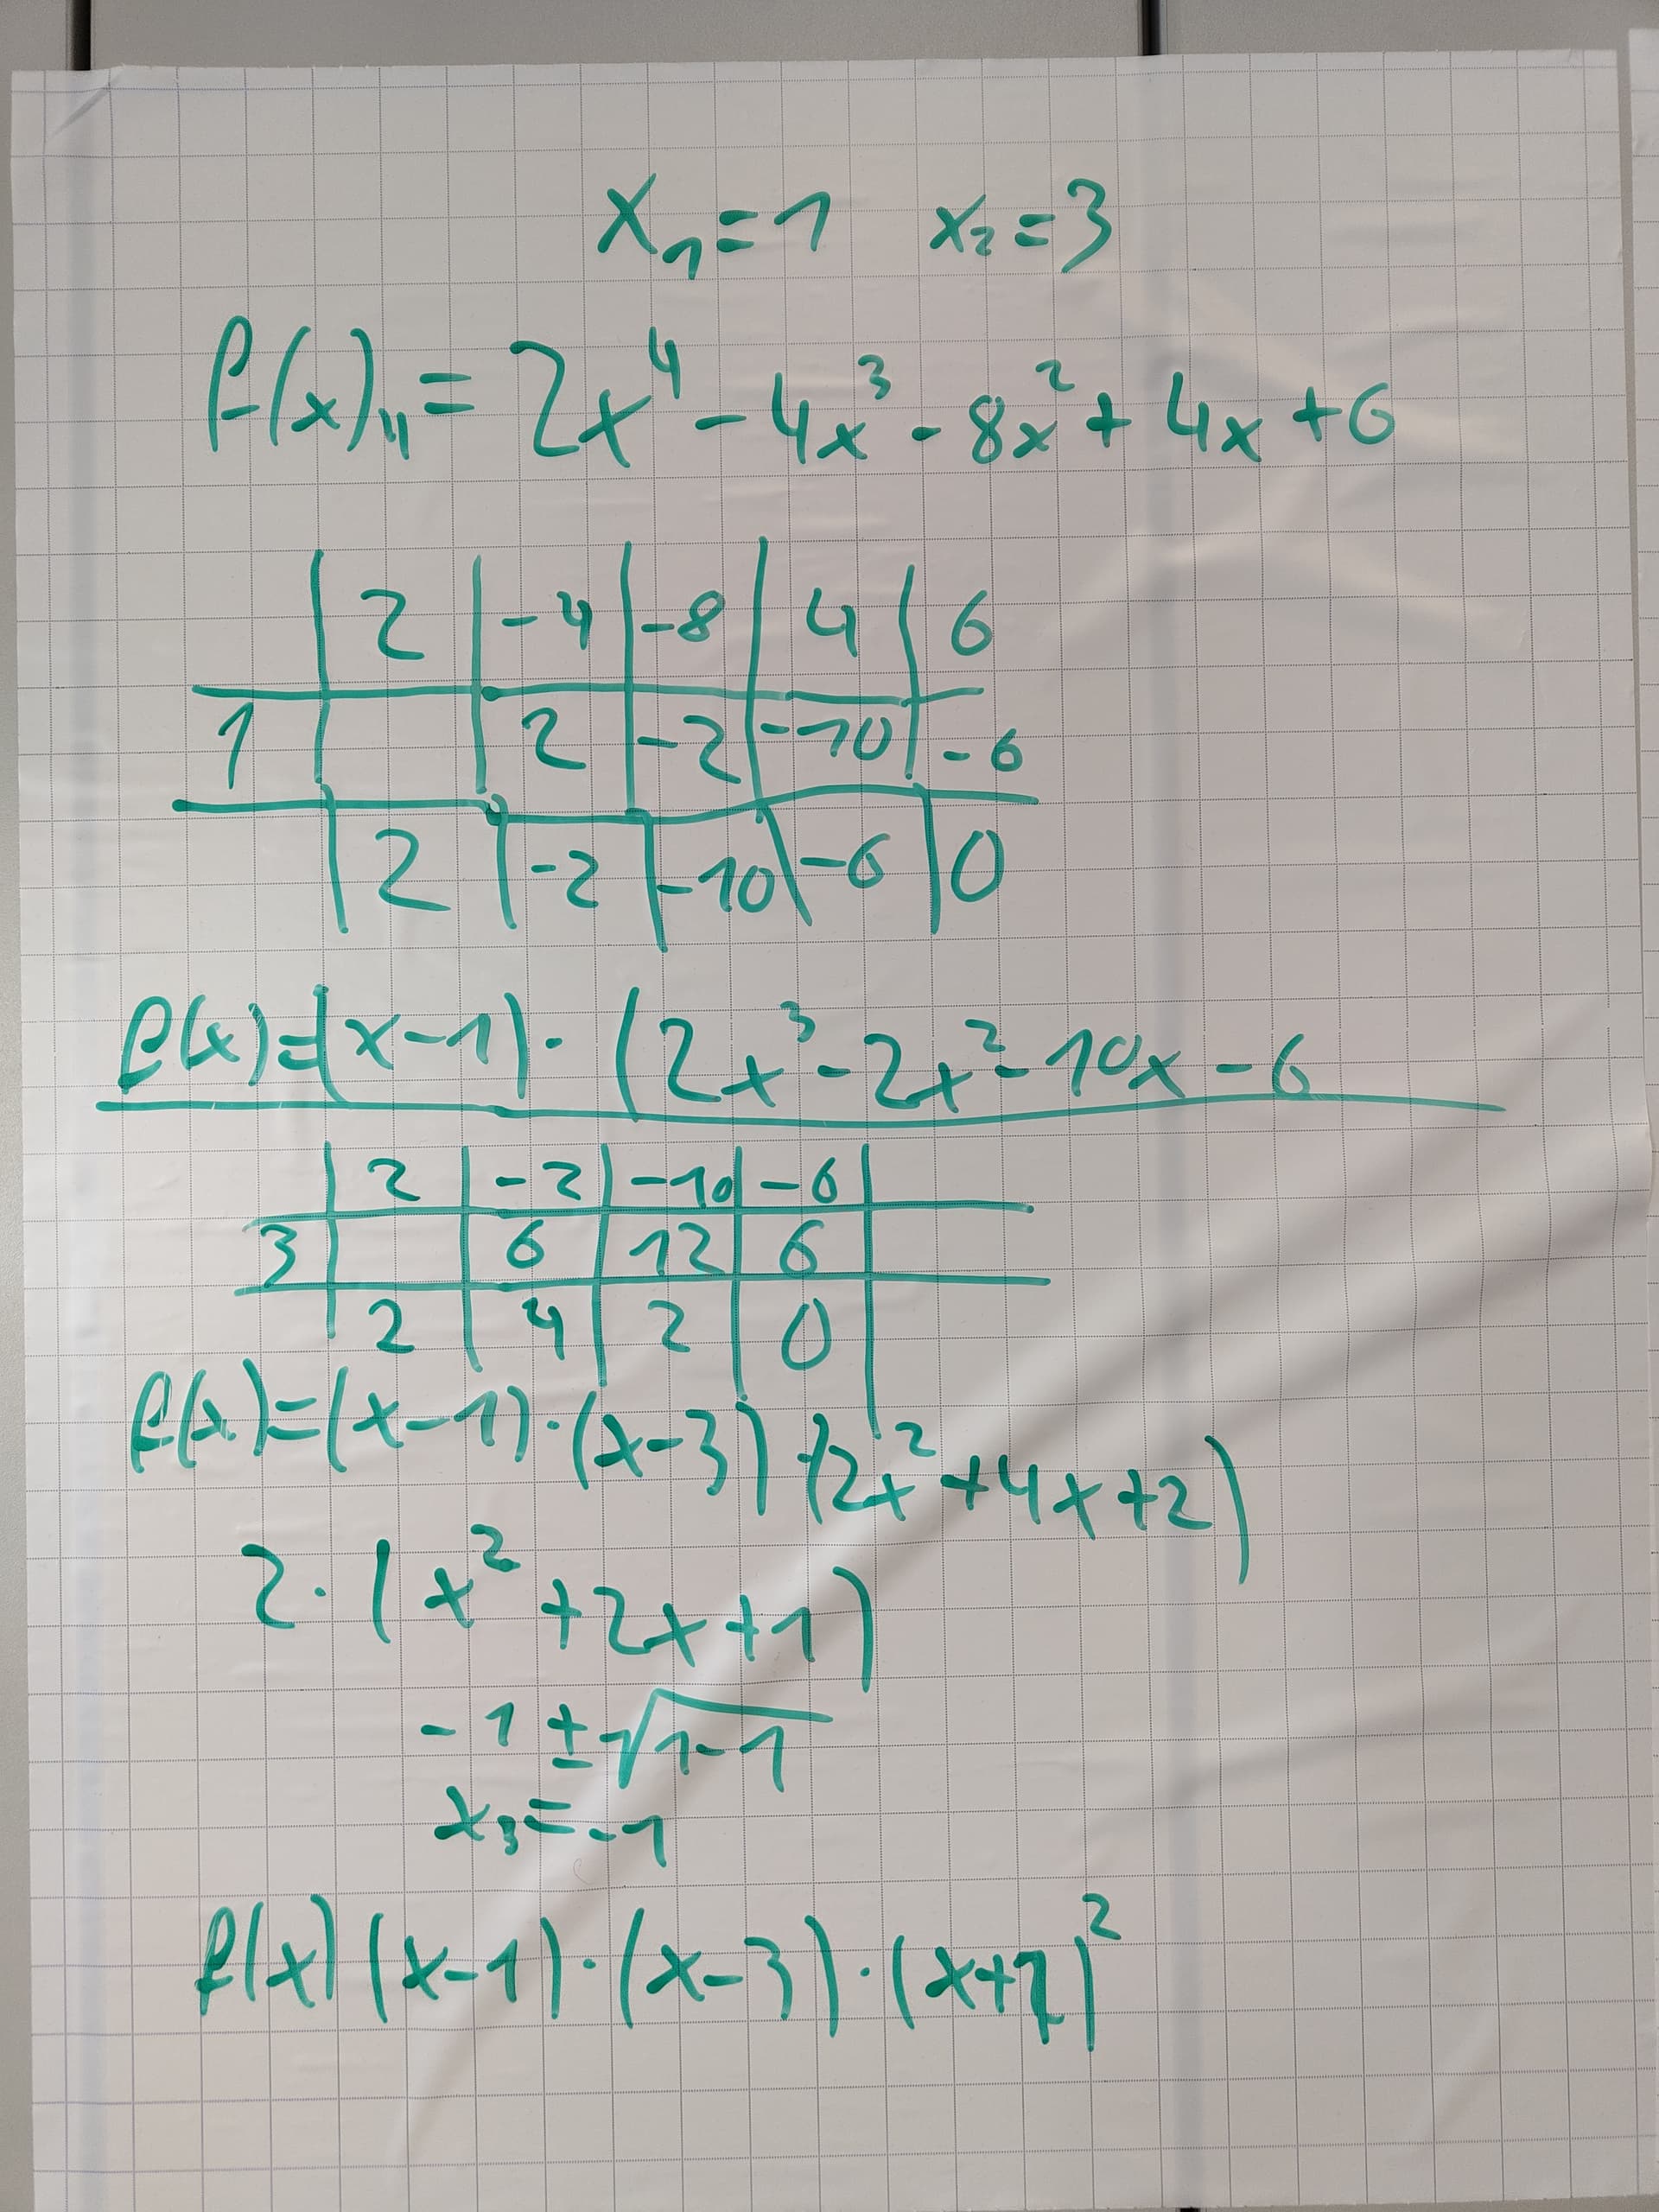 x₁=1 x₂=3
f(x)₄= 2x⁴ - 4x³ - 8x² + 4x + 6
2 | -4 | -8 | 4 | 6
1 | | 2 | -2 | -10 | -6
2 | -2 | -10 | -6 | 0
f(x)=(x-1)· (2x³-2x²-10x-6
2 | -2 | -10 | -6
3 | | 6 | 12 | 6
2 | 4 | 2 | 0
f(x)=(x-1)·(x-3)·(2x²+4x+2)
2·(x²+2x+1)
-1±√1-1
x₃=-1
f(x) (x-1)·(x-3)·(x+ )²